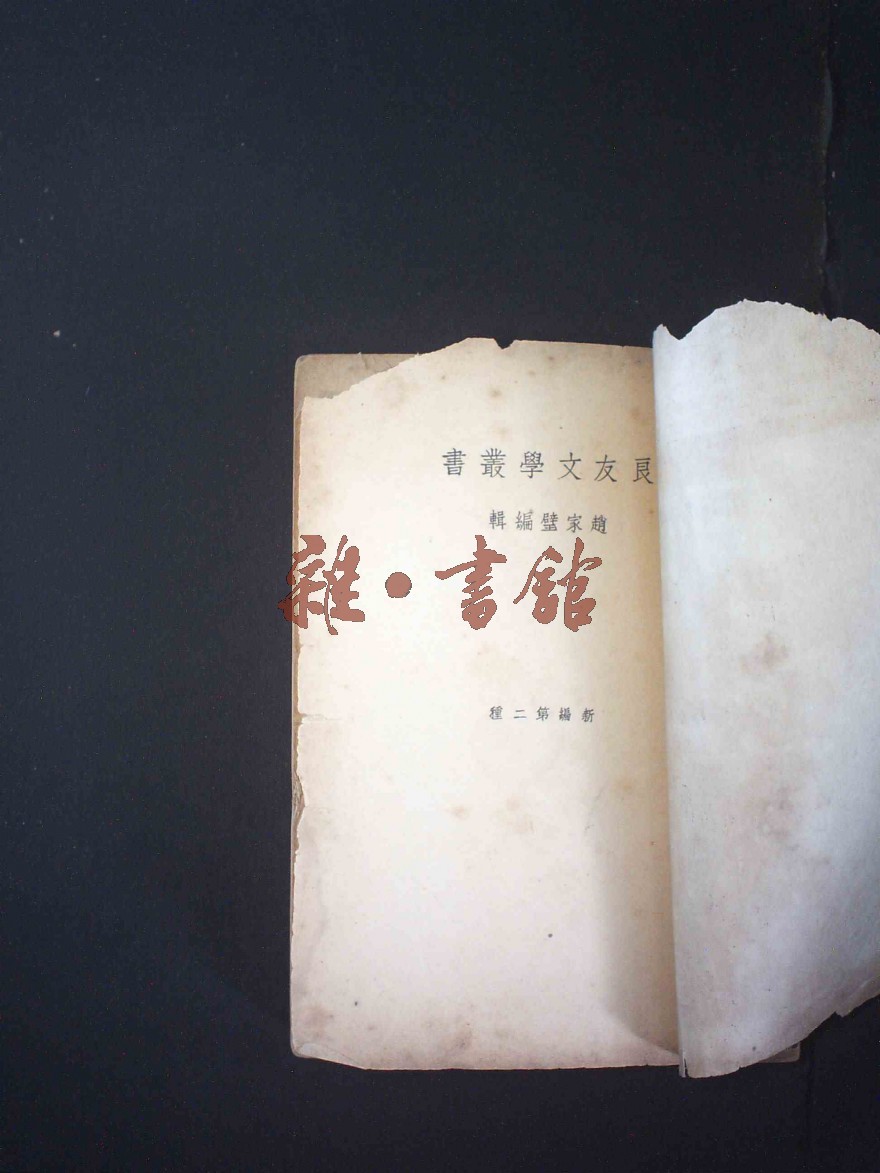 良友文學叢書
趙家璧編輯
雜·書館
新編第二種